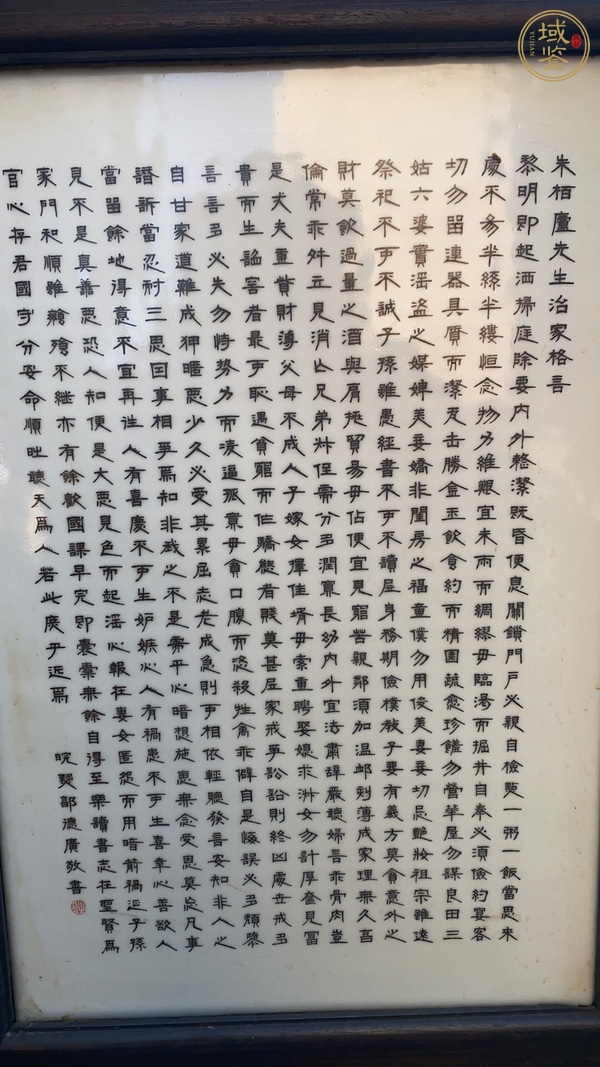 朱栢廬先生治家格言
黎明即起洒掃庭除要内外整潔既昏便息關鎖門戶必親自檢點一粥一飯當思来
處不易半絲半縷恒念物力維艱宜未雨而綢繆毋臨渴而掘井自奉必須儉約宴客
切勿留連器具質而潔瓦缶勝金玉飲食約而精園蔬愈珍饈勿營華屋勿謀良田三
姑六婆實淫盗之媒婢美妾嬌非閨房之福童僕勿用俊美妻妾切忌艷妝祖宗雖遠
祭祀不可不誠子孫雖愚經書不可不讀居身務期儉樸教子要有義方莫貪意外之
財莫飲過量之酒與肩挑貿易毋佔便宜見窮苦親鄰須加温卹刻薄成家理無久享
倫常乖舛立見消亡兄弟叔侄需分多潤寡長幼内外宜法肅辭嚴聽婦言乖骨肉豈
是丈夫重貲財薄父母不成人子嫁女擇佳壻毋索重聘娶媳求淑女勿計厚奩見富
貴而生諂容者最可恥遇貧窮而作驕態者賤莫甚居家戒爭訟訟則終凶處世戒多
言言多必失勿恃勢力而凌逼孤寡毋貪口腹而恣殺牲禽乖僻自是悔誤必多頹隳
自甘家道難成狎暱惡少久必受其累屈志老成急則可相依輕聽發言安知非人之
譖訴當忍耐三思因事相爭焉知非我之不是需平心暗想施惠無念受恩莫忘凡事
當留餘地得意不宜再往人有喜慶不可生妒嫉心人有禍患不可生喜幸心善欲人
見不是真善惡恐人知便是大惡見色而起淫心報在妻女匿怨而用暗箭禍延子孫
家門和順雖饔飧不继亦有餘歡國課早完即囊橐無餘自得至樂讀書志在聖賢爲
官心存君國守分安命順時聽天爲人若此庶乎近焉
皖黟邵德廣敬書
域鉴
YUJIAN